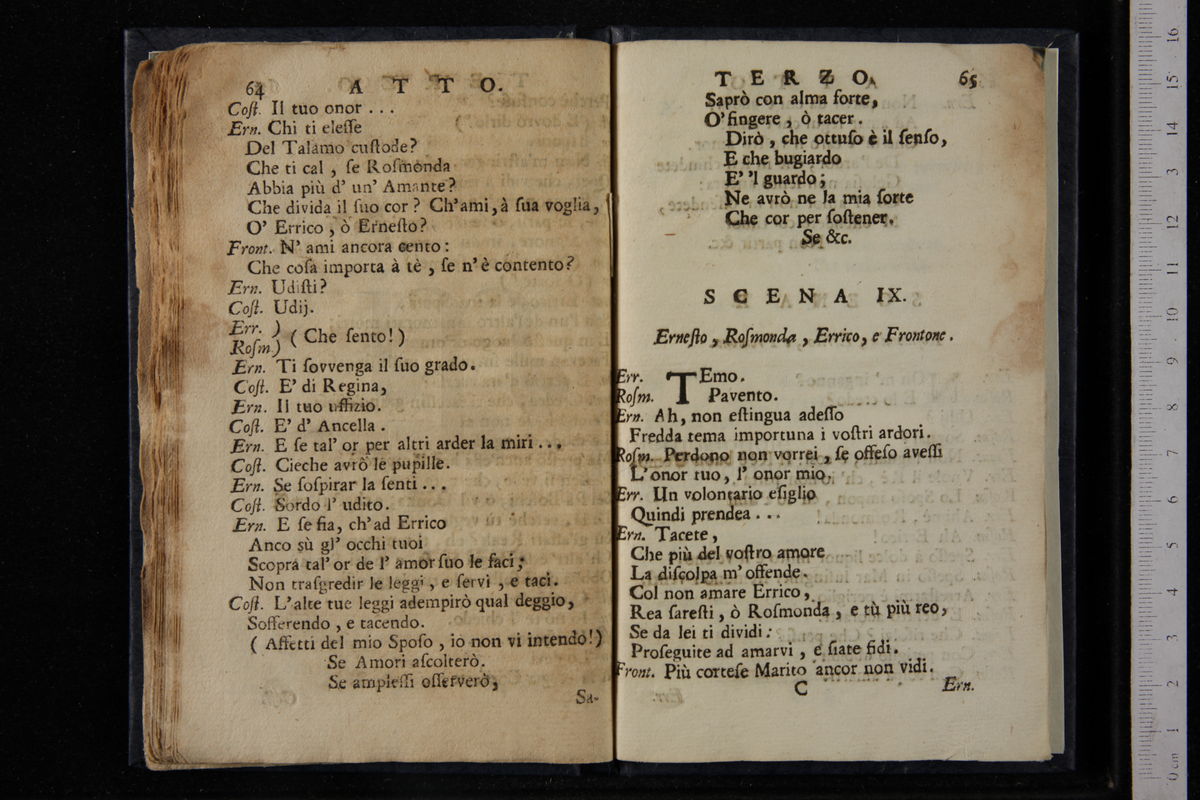 64 A T T O.
Coſt. Il tuo onor . . .
Ern. Chi ti eleſſe
Del Talamo cuſtode?
Che ti cal , ſe Roſmonda
Abbia più d' un' Amante?
Che divida il ſuo cor ? Ch'ami, à ſua voglia,
O' Errico , ò Erneſto?
Front. N' ami ancora cento :
Che coſa importa à tè , ſe n' è contento?
Ern. Udiſti?
Coſt. Udij.
Err. )
Roſm) ( Che ſento! )
Ern. Ti ſovvenga il ſuo grado.
Coſt. E' di Regina,
Ern. Il tuo uffizio.
Coſt. E' d' Ancella .
Ern. E ſe tal' or per altri arder la miri . . .
Coſt. Cieche avrò le pupille.
Ern. Se ſoſpirar la ſenti . . .
Coſt. Sordo l' udito.
Ern. E ſe fia, ch'ad Errico
Anco sù gl' occhi tuoi
Scopra tal' or de l' amor ſuo le faci;
Non traſgredir le leggi , e ſervi , e taci.
Coſt. L'alte tue leggi adempirò qual deggio,
Sofferendo , e tacendo.
( Affetti del mio Spoſo , io non vi intendo! )
Se Amori aſcolterò.
Se ampleſſi oſſerverò,
Sa-
T E R Z O. 65
Saprò con alma forte,
O' fingere , ò tacer .
Dirò , che ottuſo è il ſenſo,
E che bugiardo
E' 'l guardo ;
Ne avrò ne la mia ſorte
Che cor per ſoſtener.
Se &c.
S C E N A IX.
Erneſto , Roſmonda , Errico, e Frontone .
Err. TEmo.
Roſm. Pavento.
Ern. Ah, non eſtingua adeſſo
Fredda tema importuna i voſtri ardori.
Roſm. Perdono non vorrei , ſe offeſo aveſſi
L'onor tuo, l' onor mio.
Err. Un volontario eſiglio
Quindi prendea . . .
Ern. Tacete,
Che più del voſtro amore
La diſcolpa m' offende.
Col non amare Errico,
Rea ſareſti , ò Roſmonda , e tù più reo,
Se da lei ti dividi :
Proſeguite ad amarvi , e ſiate fidi.
Front. Più corteſe Marito ancor non vidi.
C Ern.